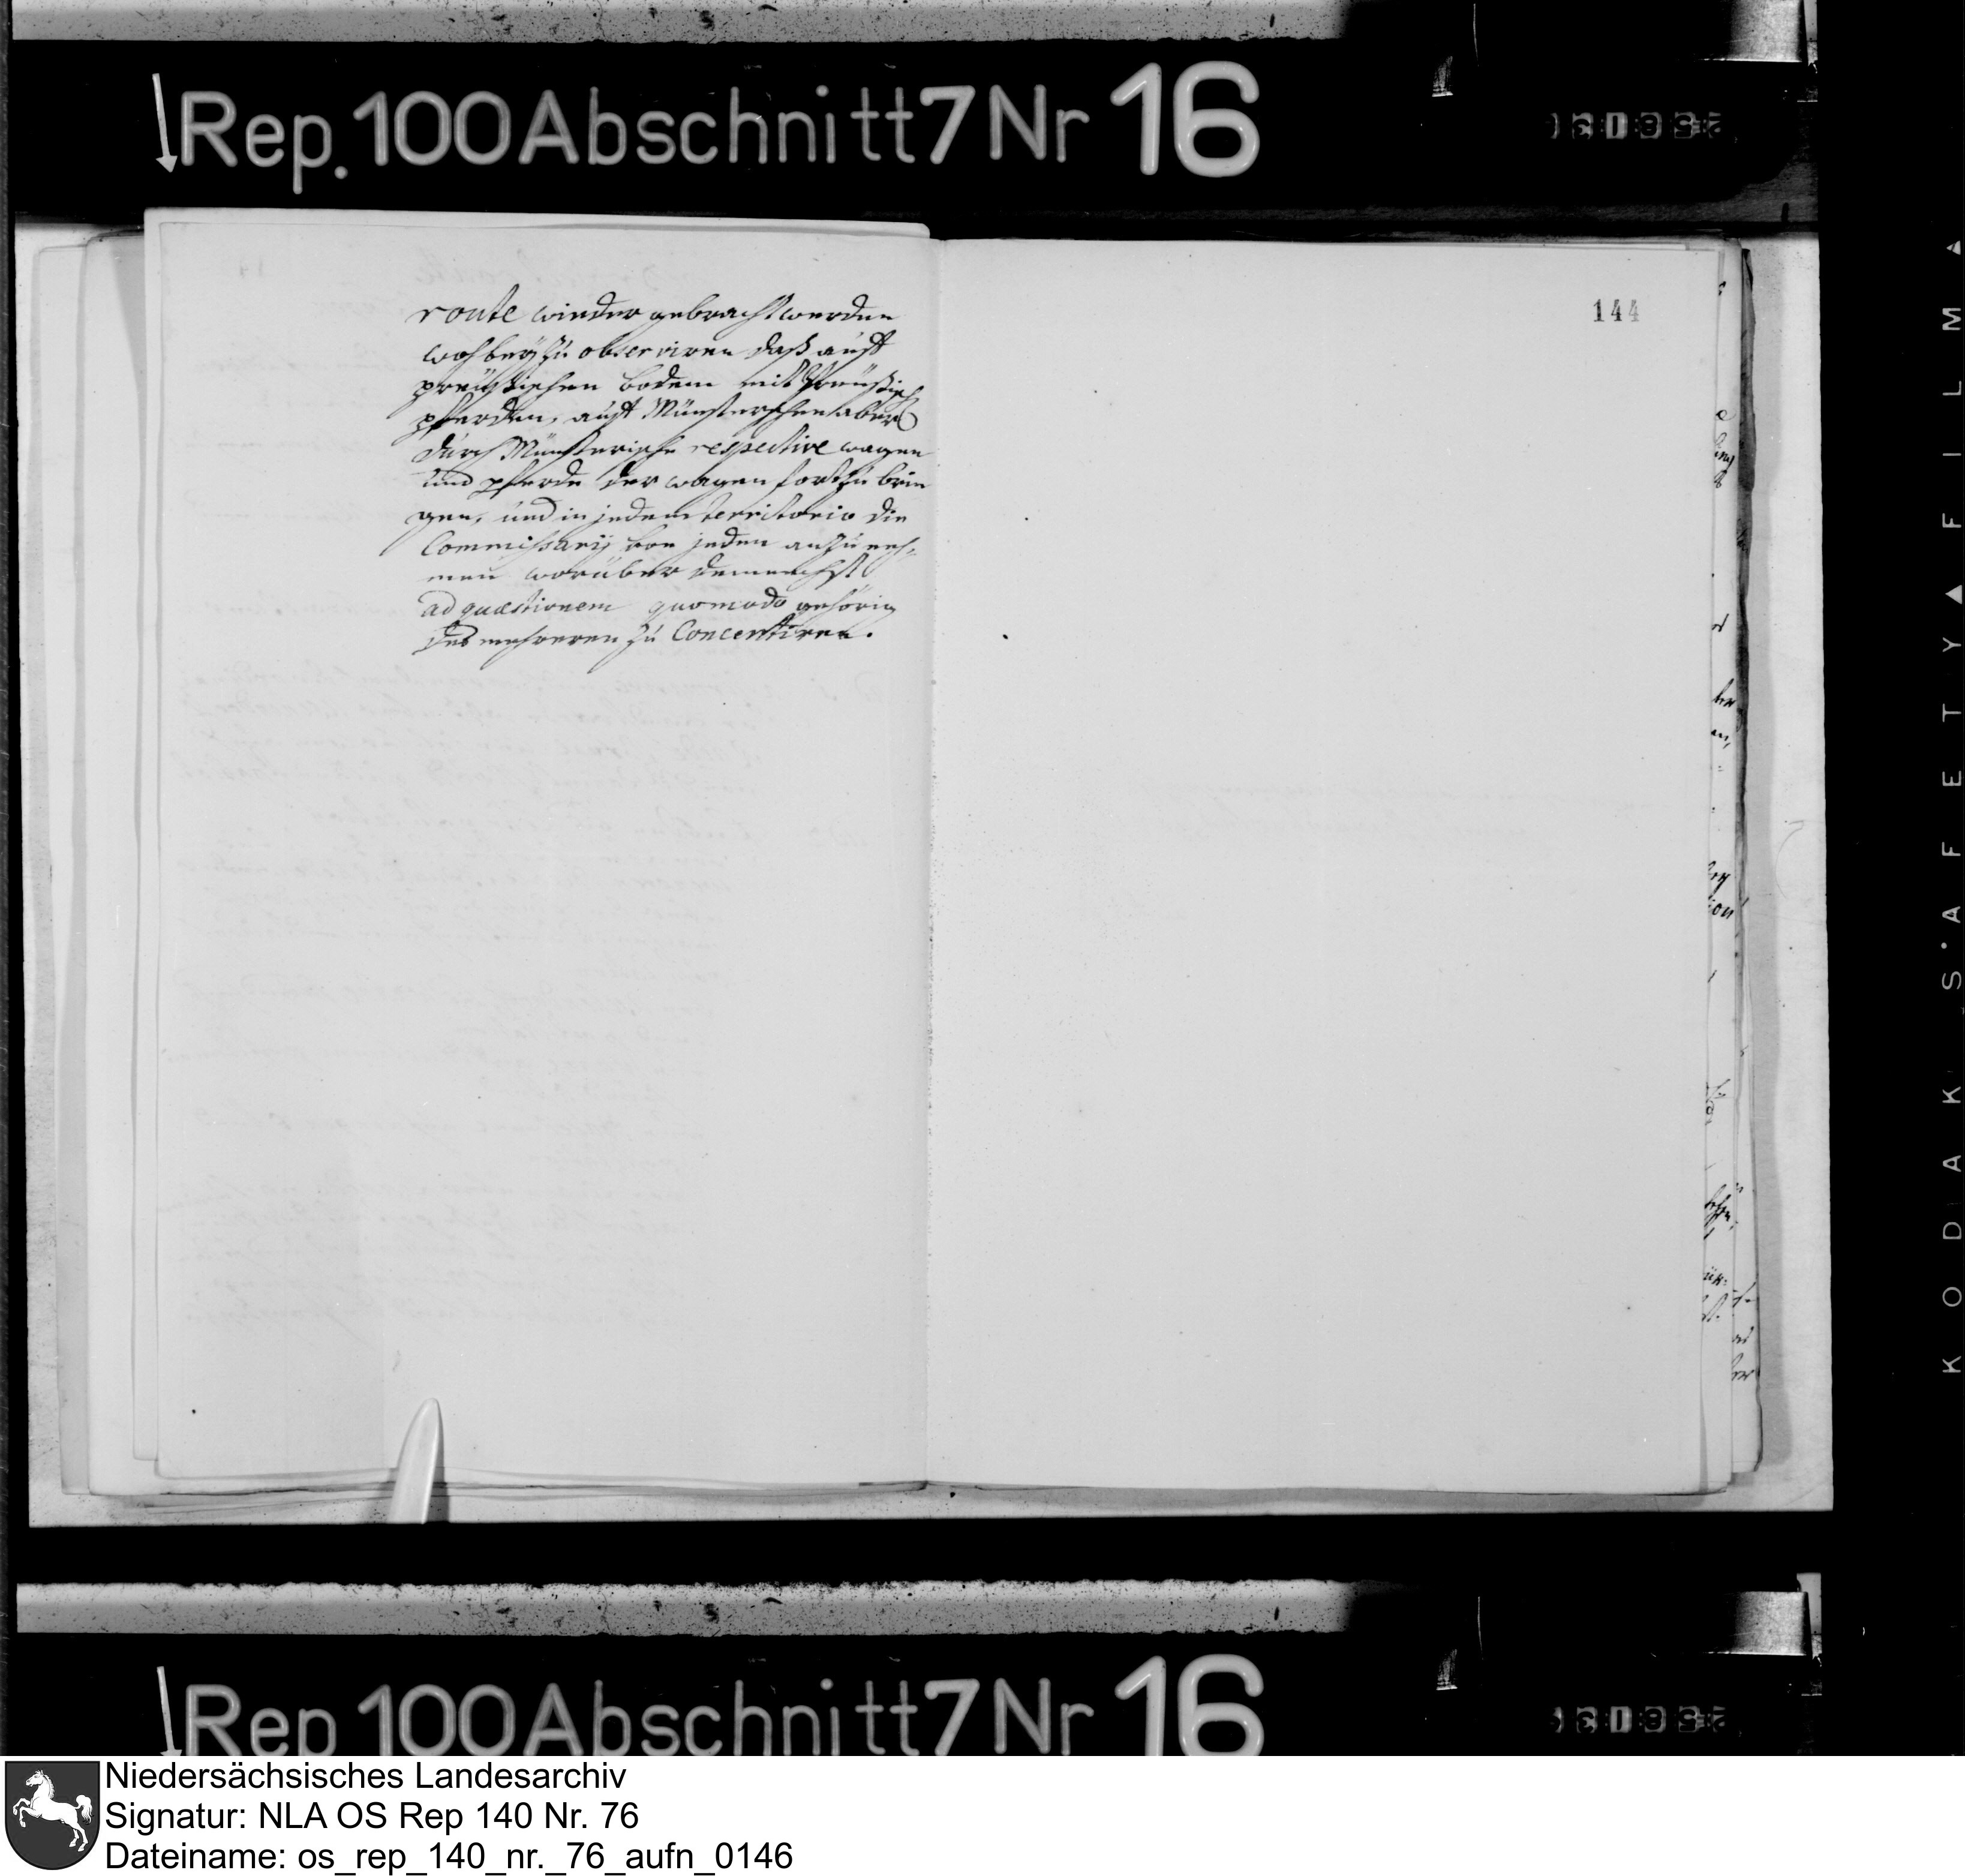 Rep. 100 Abschnitt 7 Nr 16
144
route wieder gebracht werden
wohbey zu observiren daß auff
preüßischen bodem mit Preüßisch
pferden, auff Münsterschen aber
durch Münsterische respective wagen
und pferde der wagen fortzubrin
gen, und in jedem territorio die
Commissarij von jeden anzuneh-
men worüber demnechst
ad quæstionem quomodo gehörig
des mehreren zu Concertiren.
KODAK S'AFETY ▲ FILM ▲
Rep 100 Abschnitt 7 Nr 16
Niedersächsisches Landesarchiv
Signatur: NLA OS Rep 140 Nr. 76
Dateiname: os_rep_140_nr._76_aufn_0146